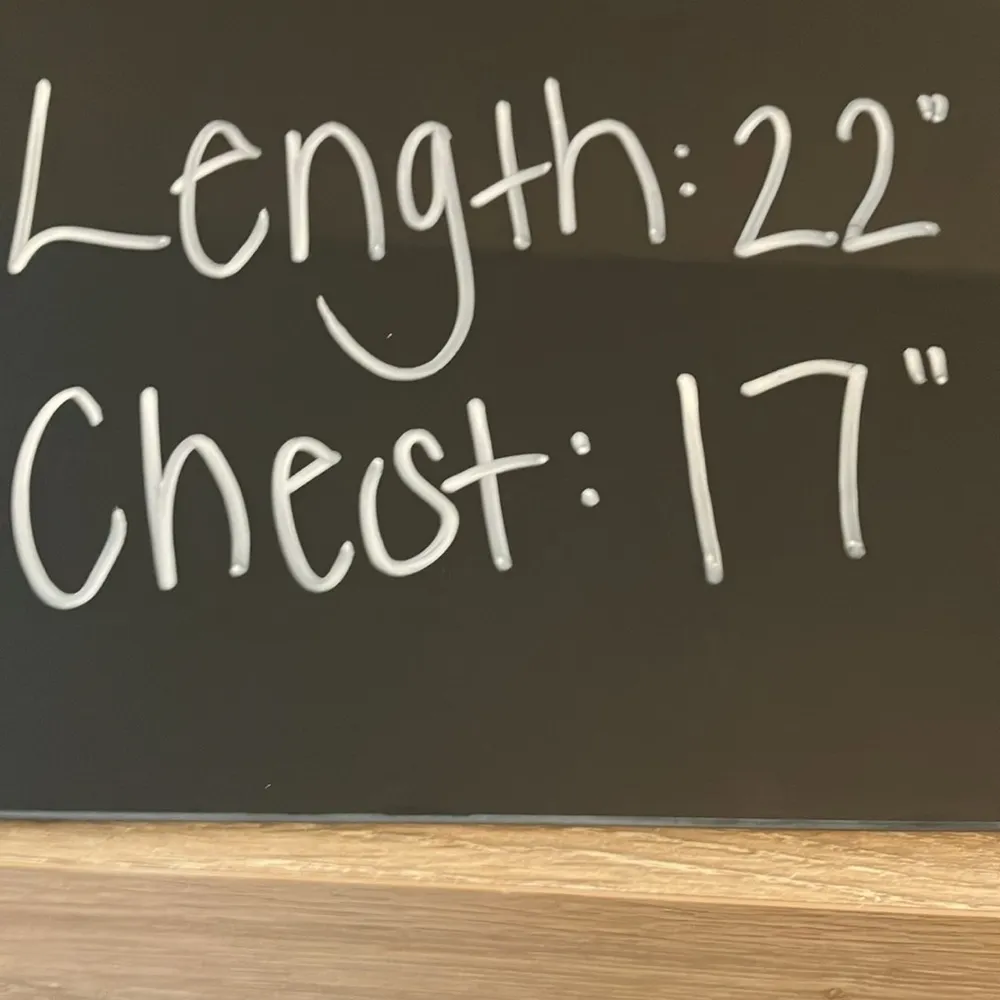 Length: 22"
Chest: 17"